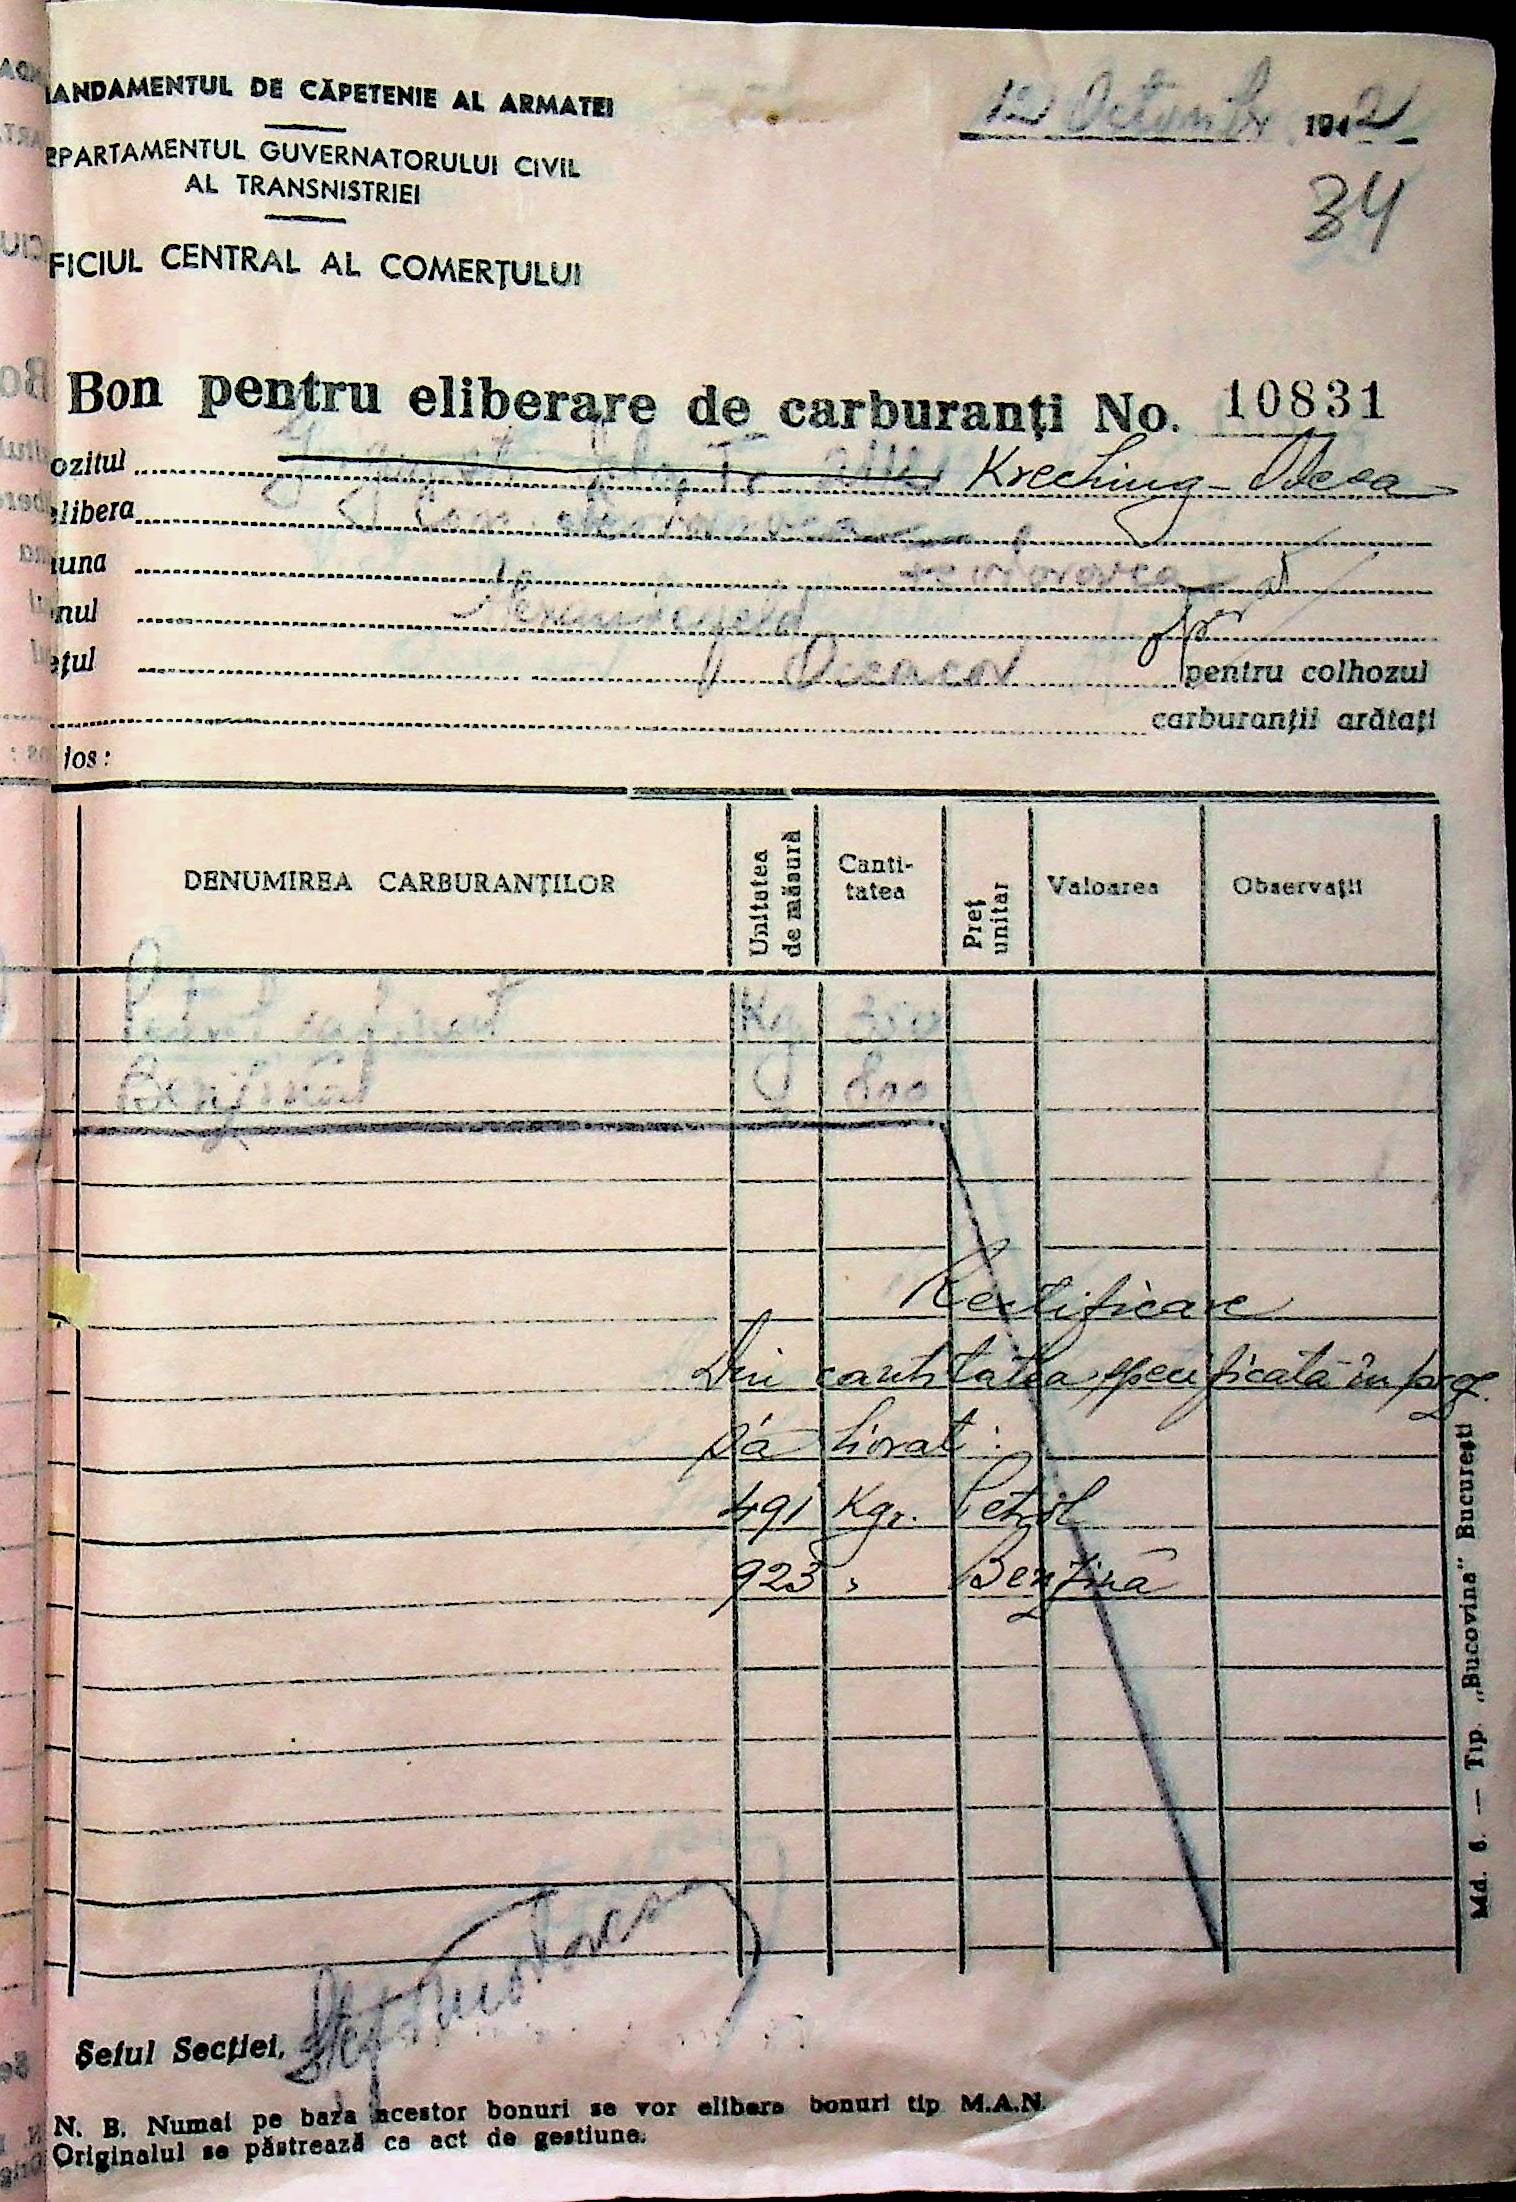 ANDAMENTUL DE CĂPETENIE AL ARMATEI
EPARTAMENTUL GUVERNATORULUI CIVIL
AL TRANSNISTRIEI
FICIUL CENTRAL AL COMERȚULUI
12 Octombr 1942
34
Bon pentru eliberare de carburanți No. 10831
ozitul
elibera
una
nul
ețul Oceacov pentru colhozul
carburanții arătați
jos:
DENUMIREA CARBURANȚILOR Unitatea de măsură Canti-tatea Preț unitar Valoarea Observații
Petrol rafinat Kg
Benzină 800
Rectificare
Din cantitatea specificată în prez.
s'a livrat:
491 Kgr. Petrol
923 " Benzină
Șeful Secției,
N. B. Numai pe baza acestor bonuri se vor elibera bonuri tip M.A.N.
Originalul se păstrează ca act de gestiune.
Md. 6. — Tip. „Bucovina" București